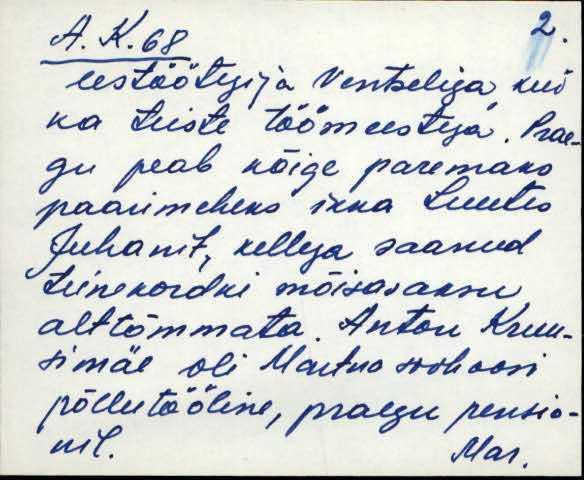 A. K. 68
2.
eestöötegija Ventseliga, kui
ka teiste töömeestega. Prae-
gu peab kõige paremaks
paarimeheks ikka Luutes
Juhanit, kellega saanud
teinekordki mõisasaksu
alttõmmata. Anton Kruu-
simäe oli Martna sovhoosi
põllutööline, praegu pensio-
nil.
Mar.